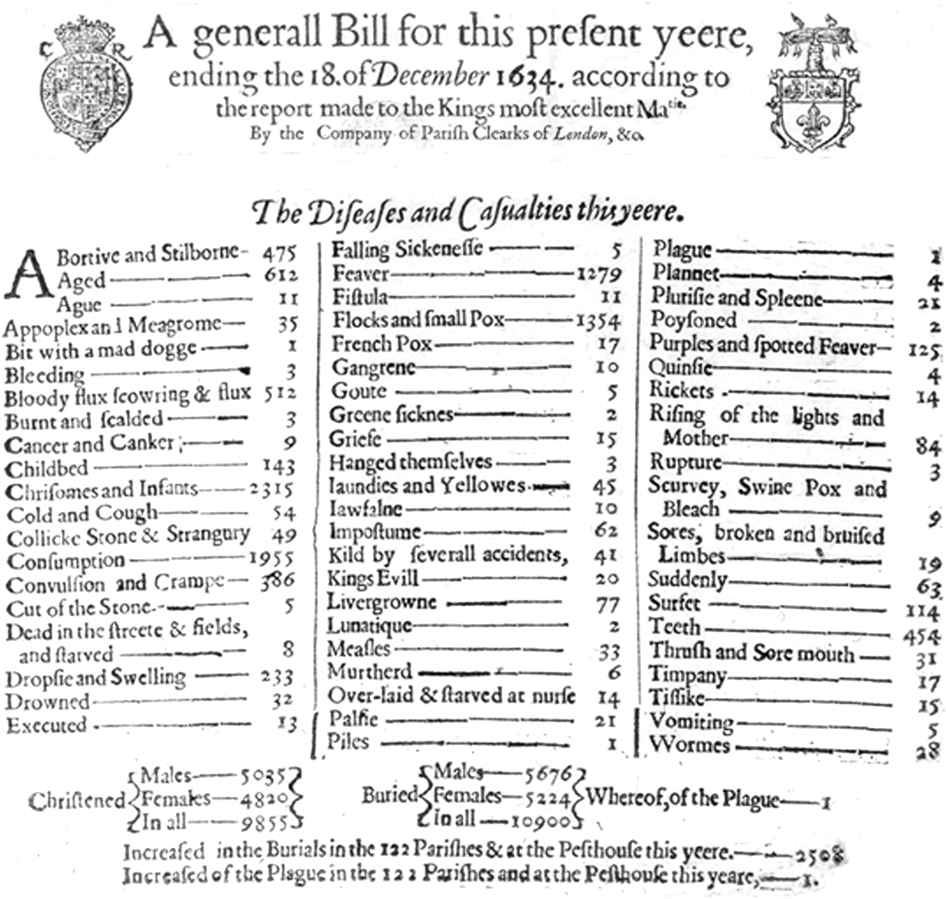 C R
A generall Bill for this preſent yeere,
ending the 18. of December 1634. according to
the report made to the Kings moſt excellent Matie.
By the Company of Pariſh Clearks of London, &c.
The Diſeaſes and Caſualties this yeere.
ABortive and Stilborne- 475
Aged— 612
Ague — 11
Appoplex and Meagrome— 35
Bit with a mad dogge — 1
Bleeding — 3
Bloody flux ſcowring & flux 512
Burnt and ſcalded — 3
Cancer and Canker — 9
Childbed — 143
Chriſomes and Infants — 2315
Cold and Cough — 54
Collicke Stone & Strangury 49
Conſumption — 1955
Convulſion and Crampe — 386
Cut of the Stone — 5
Dead in the ſtreete & fields,
and ſtarved — 8
Dropſie and Swelling — 233
Drowned — 32
Executed — 13
Falling Sickeneſſe — 5
Feaver — 1279
Fiſtula — 11
Flocks and ſmall Pox — 1354
French Pox — 17
Gangrene — 10
Goute — 5
Greene ſicknes — 2
Griefe — 15
Hanged themſelves — 3
Iaundies and Yellowes — 45
Iawfalne — 10
Impoſtume — 62
Kild by ſeverall accidents, 41
Kings Evill — 20
Livergrowne — 77
Lunatique — 2
Meaſles — 33
Murtherd — 6
Over-laid & ſtarved at nurſe 14
Palſie — 21
Piles — 1
Plague — 1
Plannet — 4
Pluriſie and Spleene — 21
Poyſoned — 2
Purples and ſpotted Feaver — 125
Quinſie — 4
Rickets — 14
Riſing of the lights and
Mother — 84
Rupture — 3
Scurvey, Swine Pox and
Bleach — 9
Sores, broken and bruiſed
Limbes — 19
Suddenly — 63
Surfet — 114
Teeth — 454
Thruſh and Sore mouth — 31
Timpany — 17
Tiſſike — 15
Vomiting — 5
Wormes — 28
Chriſtened { Males — 5035
Females — 4820
In all — 9855 }
Buried { Males — 5676
Females — 5224
In all — 10900 } Whereof, of the Plague — 1
Increaſed in the Burials in the 122 Pariſhes & at the Peſthouſe this yeere. — 2508
Increaſed of the Plague in the 122 Pariſhes and at the Peſthouſe this yeare, — 1.